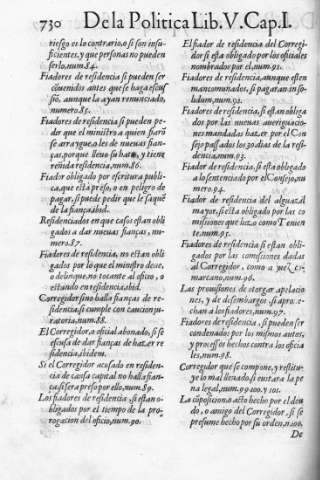 730 De la Politica Lib. V. Cap. I.
riesgo es lo contrario, o si son insu-
ficientes, y que personas no pueden
serlo, num. 84.
Fiadores de residencia si pueden ser
convenidos antes que se haga escus
siō, aunque la ayan renunciado,
numero. 85.
Fiadores de residencia si pueden pe-
dir que el ministro a quien fiarō
se arraygue, o les de nuevas fian-
ças, porque lleuo su hato, y tiene
reñida residencia, num. 86.
Fiador obligado por escritura publi-
ca, que està preso, o en peligro de
pagar, si puede pedir que le saquē
de la fiança, ibid.
Residenciados en que casos estan obli
gados a dar nueuas fianças, nu-
mero. 87.
Fiadores de residencia, no estan obli
gados por lo que el ministro deue,
o delinque, no tocante al oficio, o
estando en residencia, ibid.
Corregidor sino halla fianças de re-
sidencia, si cumple con caucion ju-
ratoria, num. 88.
El Corregidor, o oficial abonado, si se
escusa de dar fianças de hazer re
sidencia, ibidem.
Si el Corregidor acusado en residen-
cia de causa capital no halla fian-
ças, si sera preso por ello, num. 89.
Los fiadores de residencia, si estan o-
bligados por el tiempo de la pro-
rogacion del oficio, num. 90.
El fiador de residencia del Corregi-
dor si està obligado por los oficiales
nombrados por el, num. 91.
Fiadores de residencia, aunque esten
mancomunados, si pagaran in so-
lidum, num. 92.
Fiadores de residencia, si estan obliga
dos por las nueuas aueriguacio-
nes mandadas hazer por el Con
sejo passados los 30. dias de la resi-
dencia, num. 93.
Fiador de residencia, si està obligado
a lo sentenciado por el Consejo, nu
mero. 94.
Fiador de residencia del alguazil
mayor, si està obligado por las co
missiones que hizo como Tenien
te, num. 95.
Fiadores de residencia si estan obli-
gados por las comissiones dadas
al Corregidor, como a juez
num. 96.
Las prouisiones de otorgar apelacio
nes, y de desembargos, si aproue-
chan a los fiadores, num. 97.
Fiadores de residencia, si pueden ser
condenados por los mismos autos,
y processos hechos contra los oficia
les, num. 98.
Corregidor que se compone, y restitu-
ye lo mal lleuado, si euitara la pe
na legal, num. 99. 100. y 101.
La cōposicion, o acto hecho por el deu
do, o amigo del Corregidor, si se
presume hecho por su orden, n. 100.
De